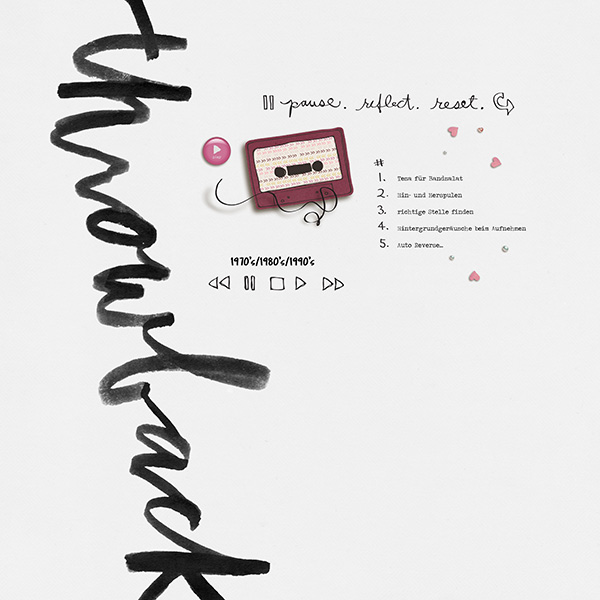 throwback
pause. reflect. reset.
#
1. Tesa für Bandsalat
2. Hin- und Herspulen
3. richtige Stelle finden
4. Hintergrundgeräusche beim Aufnehmen
5. Auto Reverse…
1970's/1980's/1990's